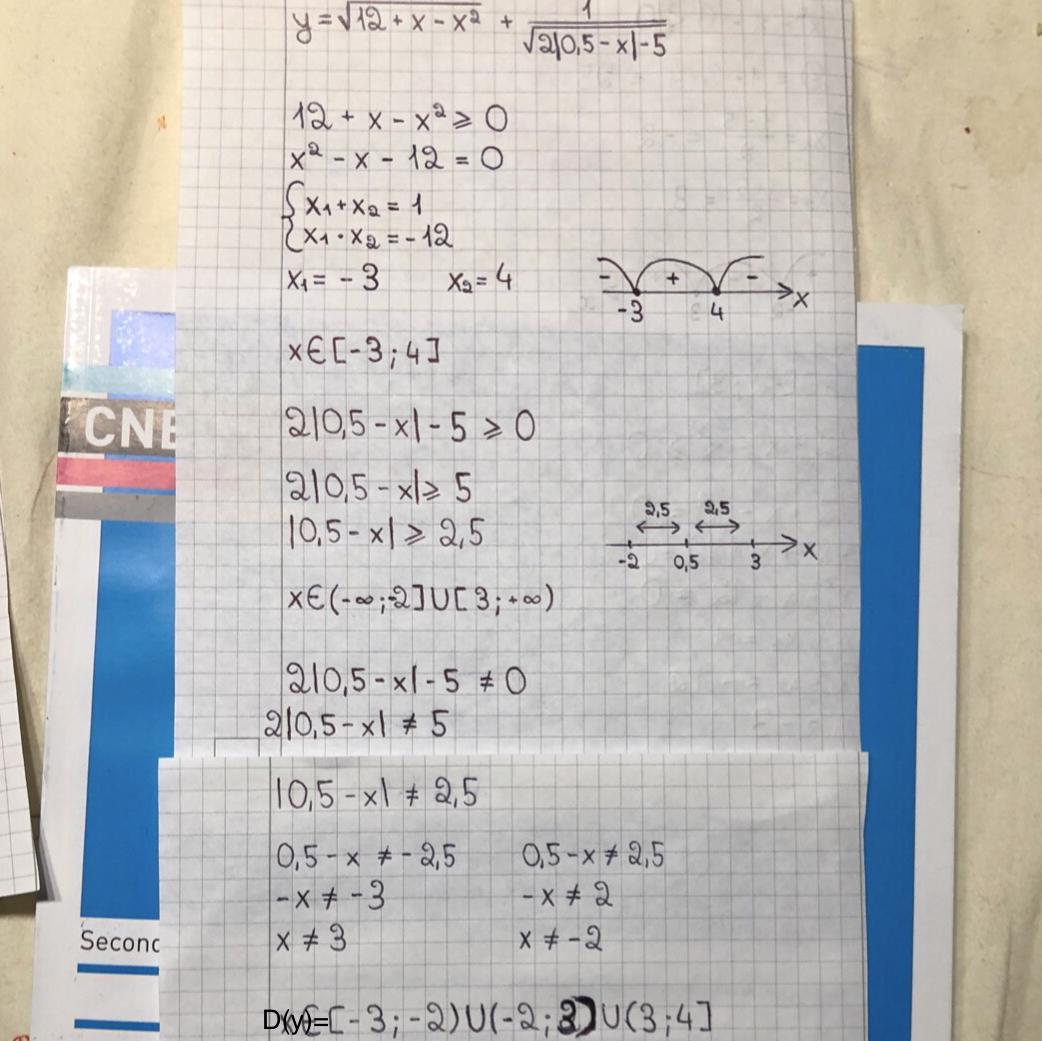 y = √12 + x - x² + 1/√2|0,5 - x| - 5
12 + x - x² ⩾ 0
x² - x - 12 = 0
{ x₁ + x₂ = 1
{ x₁ · x₂ = -12
x₁ = -3 x₂ = 4
- + -
-3 4 x
x∈[-3; 4]
CNE
2|0,5 - x| - 5 ⩾ 0
2|0,5 - x| ⩾ 5
|0,5 - x| ⩾ 2,5
2,5 2,5
-2 0,5 3 x
x∈(-∞;-2]∪[3;+∞)
2|0,5 - x| - 5 ≠ 0
2|0,5 - x| ≠ 5
|0,5 - x| ≠ 2,5
0,5 - x ≠ -2,5 0,5 - x ≠ 2,5
-x ≠ -3 -x ≠ 2
x ≠ 3 x ≠ -2
Second
D(y)=[-3; -2)∪(-2; 3)∪(3; 4]